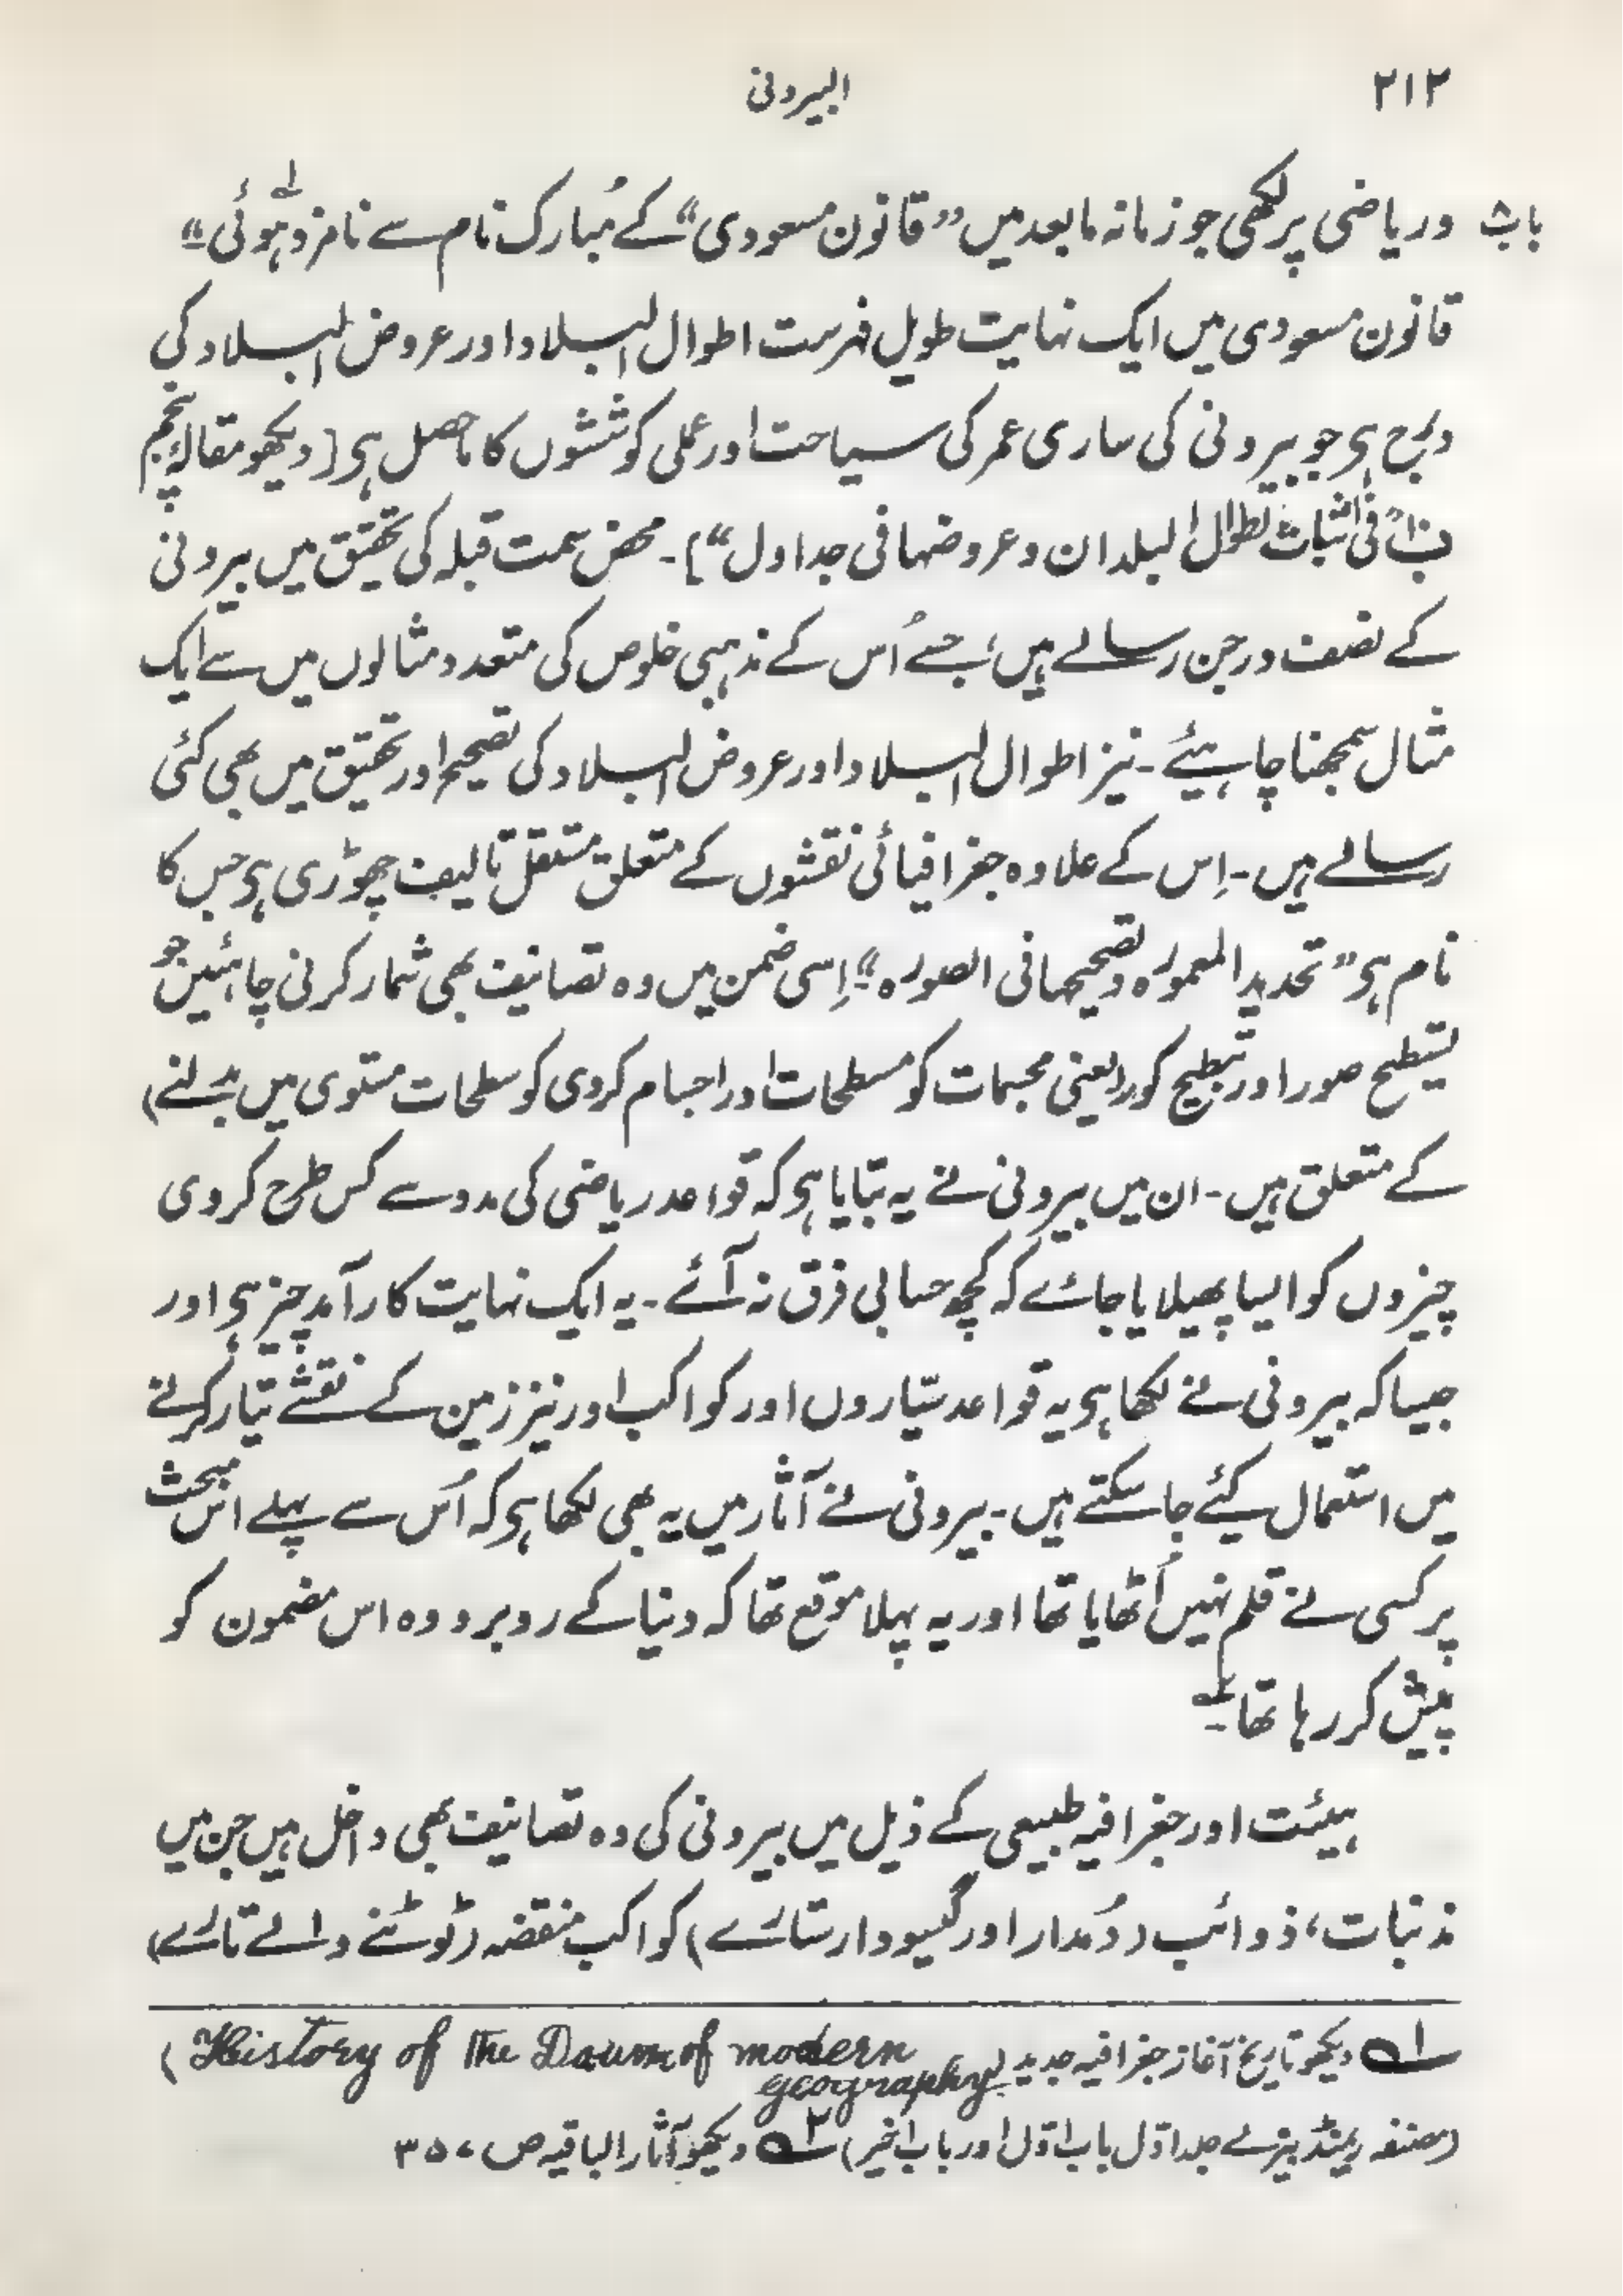 ۲۱۲ البیرونی
باب ۸ وریاضی پر لکھی جو زمانہ مابعد میں ”قانون مسعودی“ کے مُبارک نام سے نامزد ہوئی“ لہ
قانون مسعودی میں ایک نہایت طویل فہرست اطوال البلاد اور عروض البلاد کی
درج ہی جو بیرونی کی ساری عمر کی سیاحت اور عملی کوششوں کا ماحصل ہی [دیکھو مقالہ پنجم
فی اثبات اطوال البلدان و عروضہا فی جداول“]۔ محض سمت قبلہ کی تحقیق میں بیرونی
کے نصف درجن رسالے ہیں، جسے اُس کے مذہبی خلوص کی متعدد مثالوں میں سے ایک
مثال سمجھنا چاہیئے۔ نیز اطوال البلاد اور عروض البلاد کی تصحیح اور تحقیق میں بھی کئی
رسالے ہیں۔ اِس کے علاوہ جغرافیائی نقشوں کے متعلق مستقل تالیف چھوڑی ہی جس کا
نام ہی ”تحدید المعمورہ و تصحیحہا فی الصورہ“۔ اِسی ضمن میں وہ تصانیف بھی شمار کرنی چاہئیں جو
تسطیح صور اور تبطیح کور (یعنی مجسمات کو مسطحات اور اجسام کروی کو سطحات مستوی میں بدلنے)
کے متعلق ہیں۔ ان میں بیرونی نے یہ بتایا ہی کہ قواعد ریاضی کی مدد سے کس طرح کروی
چیزوں کو ایسا پھیلایا جائے کہ کچھ حسابی فرق نہ آئے۔ یہ ایک نہایت کار آمد چیز ہی اور
جیسا کہ بیرونی نے لکھا ہی یہ قواعد سیّاروں اور کواکب اور نیز زمین کے نقشے تیار کرنے
میں استعمال کیئے جا سکتے ہیں۔ بیرونی نے آثار میں یہ بھی لکھا ہی کہ اُس سے پہلے اس مبحث
پر کسی نے قلم نہیں اُٹھایا تھا اور یہ پہلا موقع تھا کہ دنیا کے روبرو وہ اس مضمون کو
پیش کر رہا تھا۔ ۲
ہیئت اور جغرافیہ طبیعی کے ذیل میں بیرونی کی وہ تصانیف بھی داخل ہیں جن میں
مذنبات، ذوائب (دُمدار اور گیسودار ستارے) کواکب منقضہ (ٹوٹنے والے تارے)
لہ دیکھو تاریخ آغاز جغرافیہ جدید (History of the Dawn of modern geography)
(مصنفہ ریمنڈ بیزلے جلد اوّل باب اوّل اور باب اخیر) ۲ہ دیکھو آثار الباقیہ ص ۳۵۷